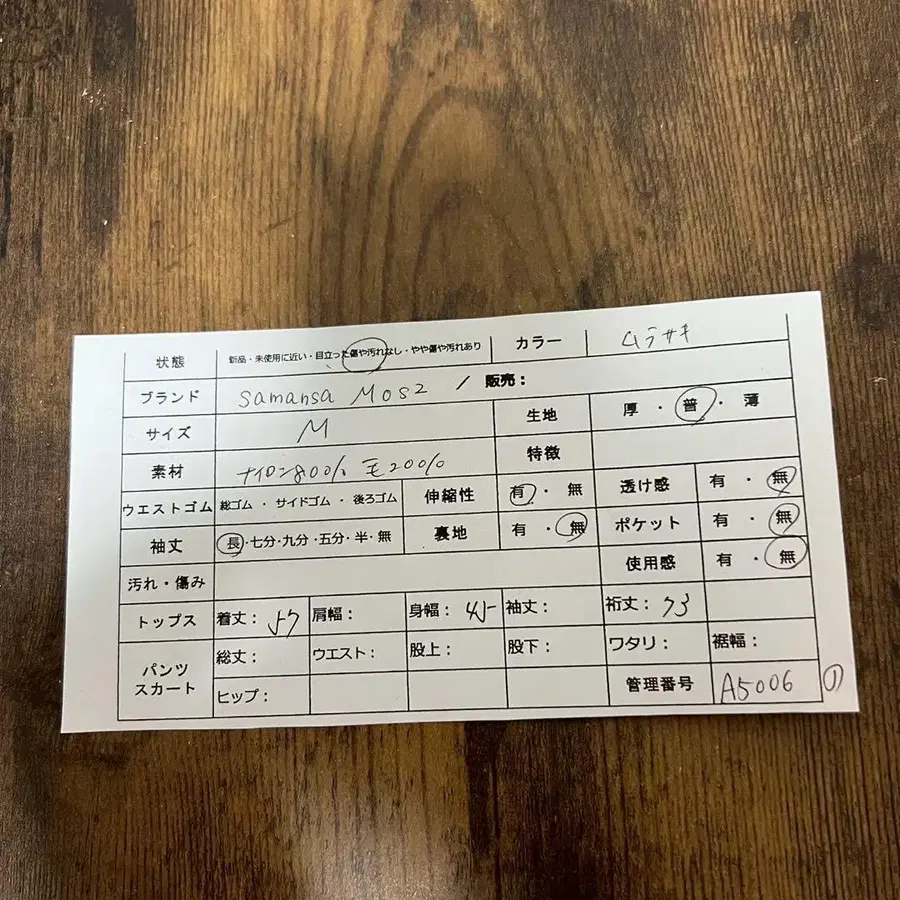 状態 新品・未使用に近い・目立った傷や汚れなし・やや傷や汚れあり カラー ムラサキ
ブランド samansa Mos2 / 販売：
サイズ M 生地 厚・普・薄
素材 ナイロン80% 毛20% 特徴
ウエストゴム 総ゴム・サイドゴム・後ろゴム 伸縮性 有・無 透け感 有・無
袖丈 長・七分・九分・五分・半・無 裏地 有・無 ポケット 有・無
汚れ・傷み 使用感 有・無
トップス 着丈：57 肩幅： 身幅：45 袖丈： 裄丈：73
パンツ スカート 総丈： ウエスト： 股上： 股下： ワタリ： 裾幅：
ヒップ： 管理番号 A5006 ①